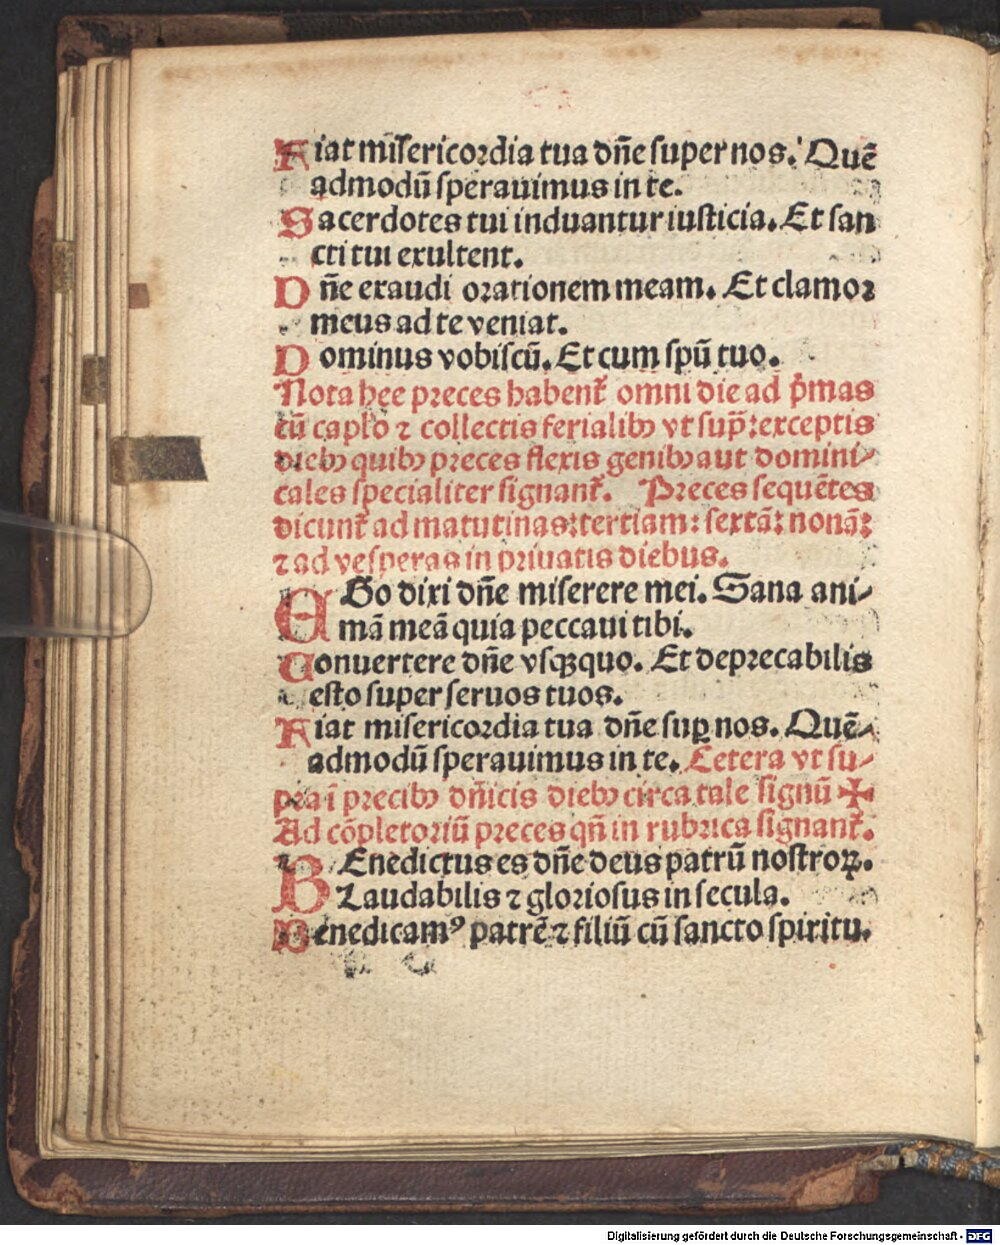 Fiat misericordia tua dñe super nos. Quē
admodū sperauimus in te.
Sacerdotes tui induantur iusticia. Et san
cti tui exultent.
Dñe exaudi orationem meam. Et clamor
meus ad te veniat.
Dominus vobiscū. Et cum spū tuo.
Nota hee preces habent̄ omni die ad p̄mas
cū caplo ⁊ collectis ferialibꝫ vt sup̄: exceptis
diebꝫ quibꝫ preces flexis genibꝫ aut domini⸗
cales specialiter signant̄. Preces sequētes
dicunt̄ ad matutinas: tertiam: sextā: nonā:
⁊ ad vesperas in priuatis diebus.
EGo dixi dñe miserere mei. Sana ani⸗
mā meā quia peccaui tibi.
Conuertere dñe vsqꝫquo. Et deprecabilis
esto super seruos tuos.
Fiat misericordia tua dñe suꝑ nos. Quē⸗
admodū sperauimus in te. Cetera vt su⸗
pra ī precibꝫ dn̄icis diebꝫ circa tale signū ✠
Ad cōpletoriū preces qn̄ in rubrica signant̄.
BEnedictus es dñe deus patrū nostroꝝ.
Laudabilis ⁊ gloriosus in secula.
Benedicamꝰ patrē ⁊ filiū cū sancto spiritu.
Digitalisierung gefördert durch die Deutsche Forschungsgemeinschaft - DFG